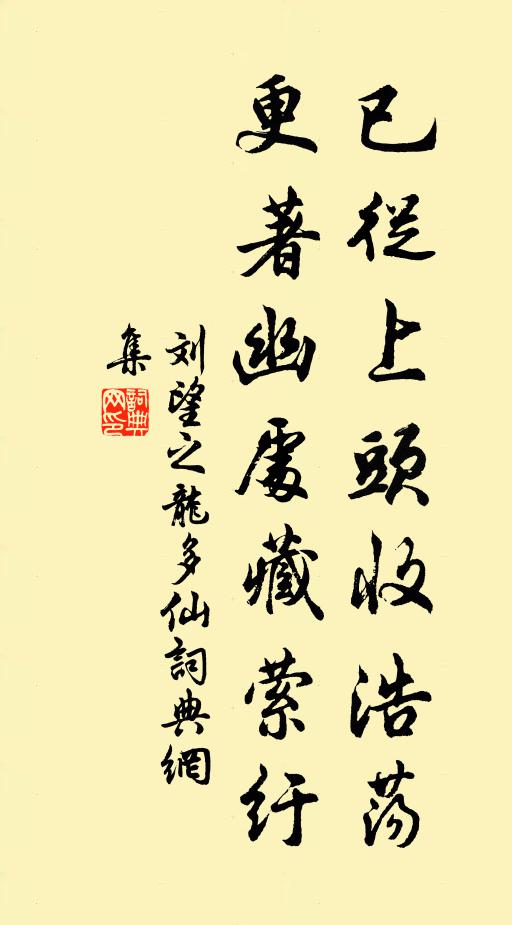 已從上頭收浩蕩
更著幽處藏縈紆
刘望之龍多仙詞典網
集
詞典
网印